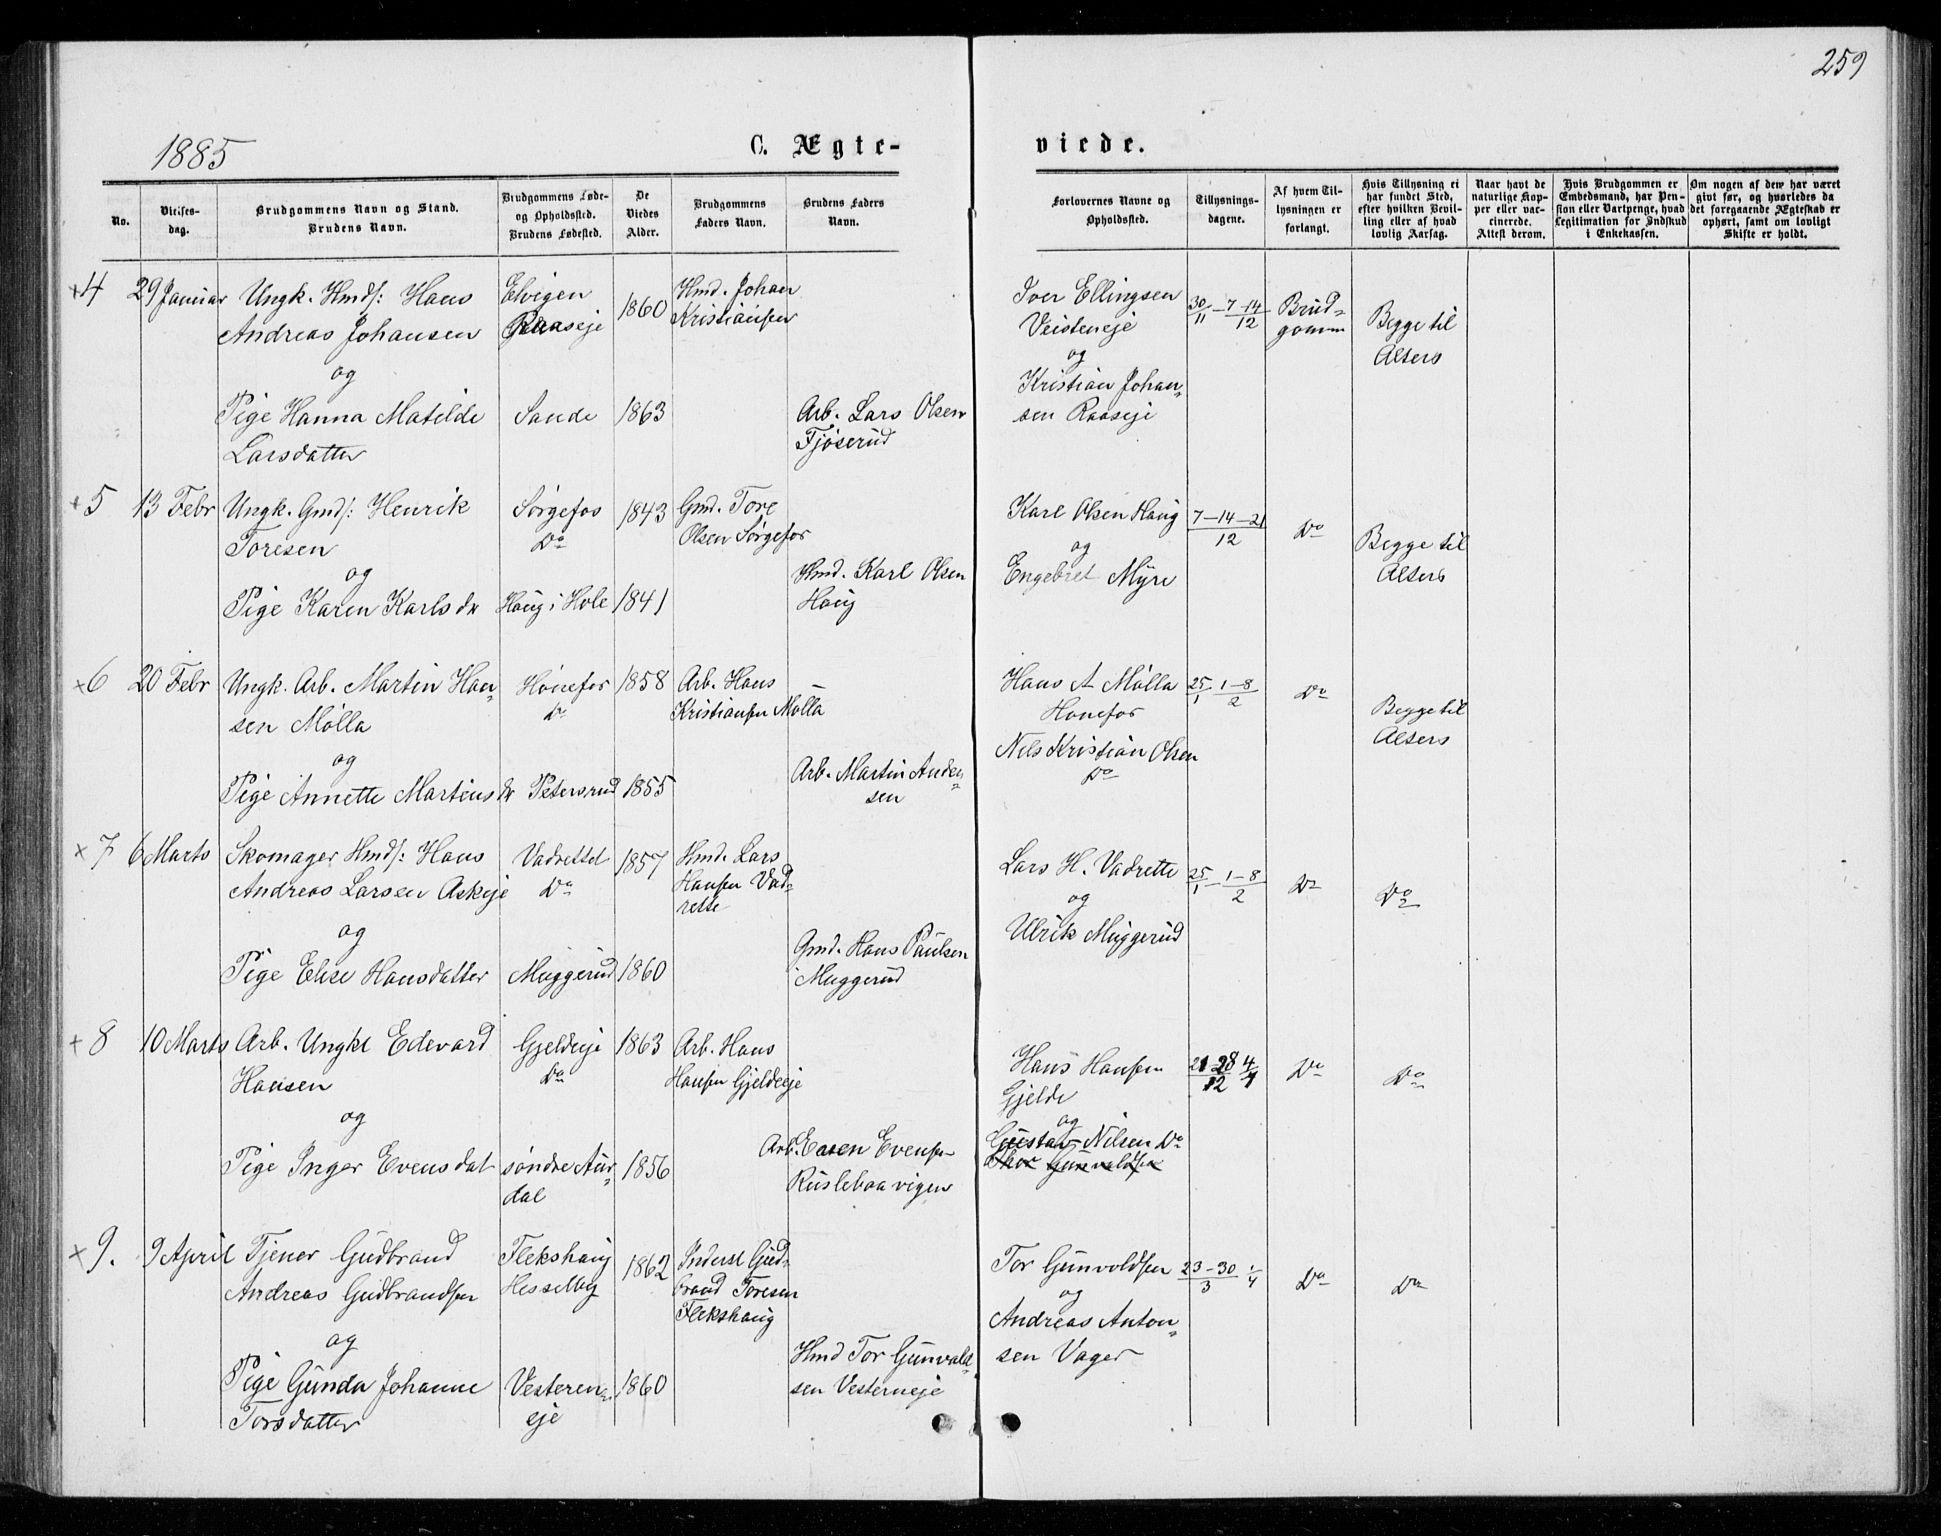 259
1885
C. Ægte-
viede.
No.
Vielses-
dag.
Brudgommens Navn og Stand.
Brudens Navn.
Brudgommens Føde-
og Opholdssted.
Brudens Fødested.
De
Viedes
Alder.
Brudgommens
Faders Navn.
Brudens Faders
Navn.
Forlovernes Navne og
Opholdssted.
Tillysnings-
dagene.
Af hvem Til-
lysningen er
forlangt.
Hvis Tillysning ei
har fundet Sted,
efter hvilken Bevil-
ling eller af hvad
lovlig Aarsag.
Naar havt de
naturlige Kop-
per eller vac-
cinerede.
Attest derom.
Hvis Brudgommen er
Embedsmand, har Pen-
sion eller Vartpenge, hvad
Legitimation for Indskud
i Enkekassen.
Om nogen af dem har været
gift før, og hvorledes da
det foregaaende Ægteskab er
ophørt, samt om lovligt
Skifte er holdt.
+4 29 Januar Ungk. Hmds: Hans
Andreas Johansen
og
Pige Hanna Matilde
Larsdatter
Elvigen
Raaseje
Sande
1860
1863
Hmd. Johan
Kristiansen
Arb. Lars Olsen
Tjøserud
Iver Ellingsen
Veisteneje
og
Kristian Johan-
sen Raaseje
30/11 - 7-14/12
Brud-
gomm
Begge til
Alters
+5 13 Febr Ungk. Gmds: Henrik
Toresen
og
Pige Karen Karlsdr
Sørgefos
Do
Haug i Hole
1843
1841
Gmd. Tore
Olsen Sørgefos
Hmd. Karl Olsen
Haug
Karl Olsen Haug
og
Engebret Myre
7-14-21/12
Do
Begge til
Alters
+6 20 Febr Ungk. Arb. Martin Han-
sen Mølla
og
Pige Annette Martinsdr
Hønefos
Do
Petersrud
1858
1855
Arb. Hans
Kristiansen Mølla
Arb. Martin Ander-
sen
Hans A Mølla
Hønefos
Nils Kristian Olsen
Do
25/1 1-8/2
Do
Begge til
Alters
×7 6 Marts Skomager Hmds: Hans
Andreas Larsen Askeje
og
Pige Elise Hansdatter
Vadrettet
Do
Muggerud
1857
1860
Hmd. Lars
Hansen Vad-
rette
Gmd. Hans Paulsen
Muggerud
Lars H. Vadrette
og
Ulrik Muggerud
25/1 - 1-8/2
Do
Do
+8 10 Marts Arb. Ungkl Edevard
Hansen
og
Pige Inger Evensdat
Gjeldeeje
Do
søndre Aur-
dal
1863
1856
Arb. Hans
Hansen Gjeldeeje
Arb. Even Evensen
Ruslebaavigen
Hans Hansen
Gjelde
og
Gustav Nilsen Do
Thor Gunvaldsen
21 28/12 4/1
Do
Do
×9. 9 April Tjener Gudbrand
Andreas Gudbrandsen
og
Pige Gunda Johanne
Torsdatter
Flekshaug
Hesselbg
Vesteren-
eje
1862
1860
Inderst Gud-
brand Toresen
Flekshaug
Hmd Tor Gunvald-
sen Vesterneje
Tor Gunvoldsen
og
Andreas Anton-
sen Vager
23-30/3 1/4
Do
Do